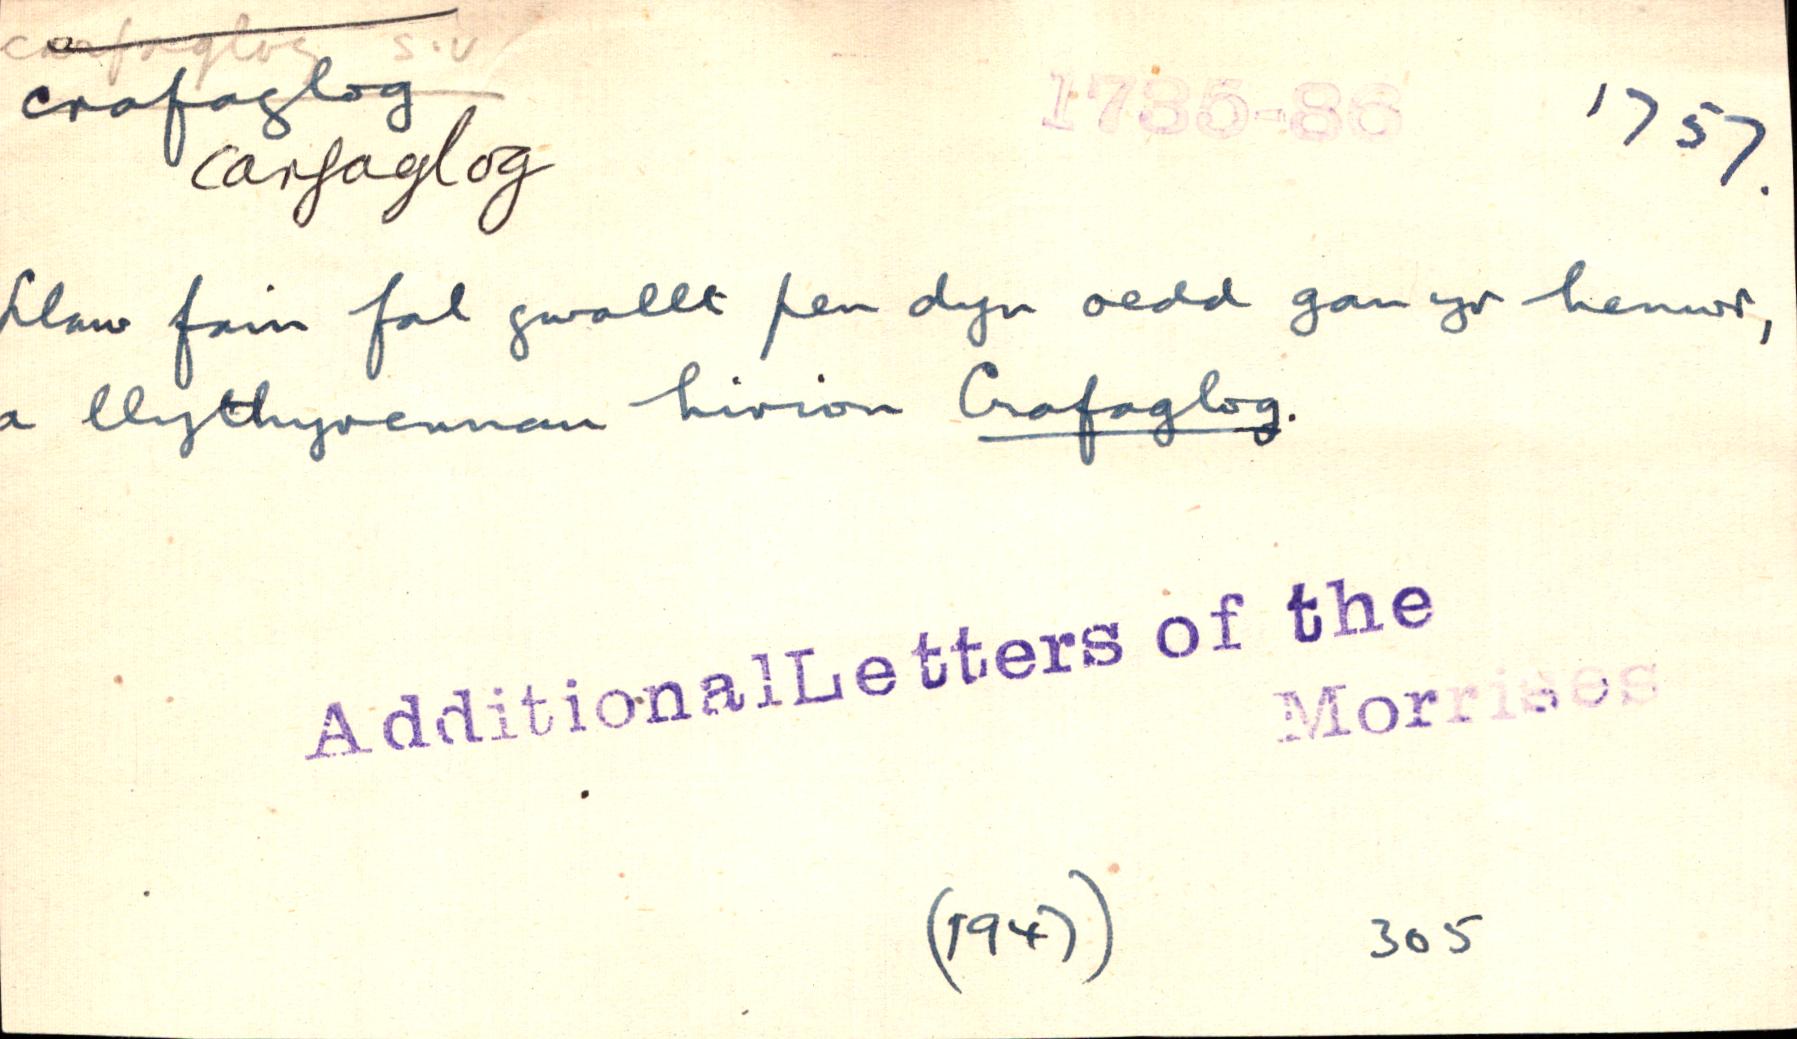 crafaglog s.v
crafaglog
carfaglog
1735-86
1757.
Llaw fain fal gwallt pen dyn oedd gan yr henwr,
a llythyrennau hirion Crafaglog.
AdditionalLetters of the
Morrises
(1947) 305